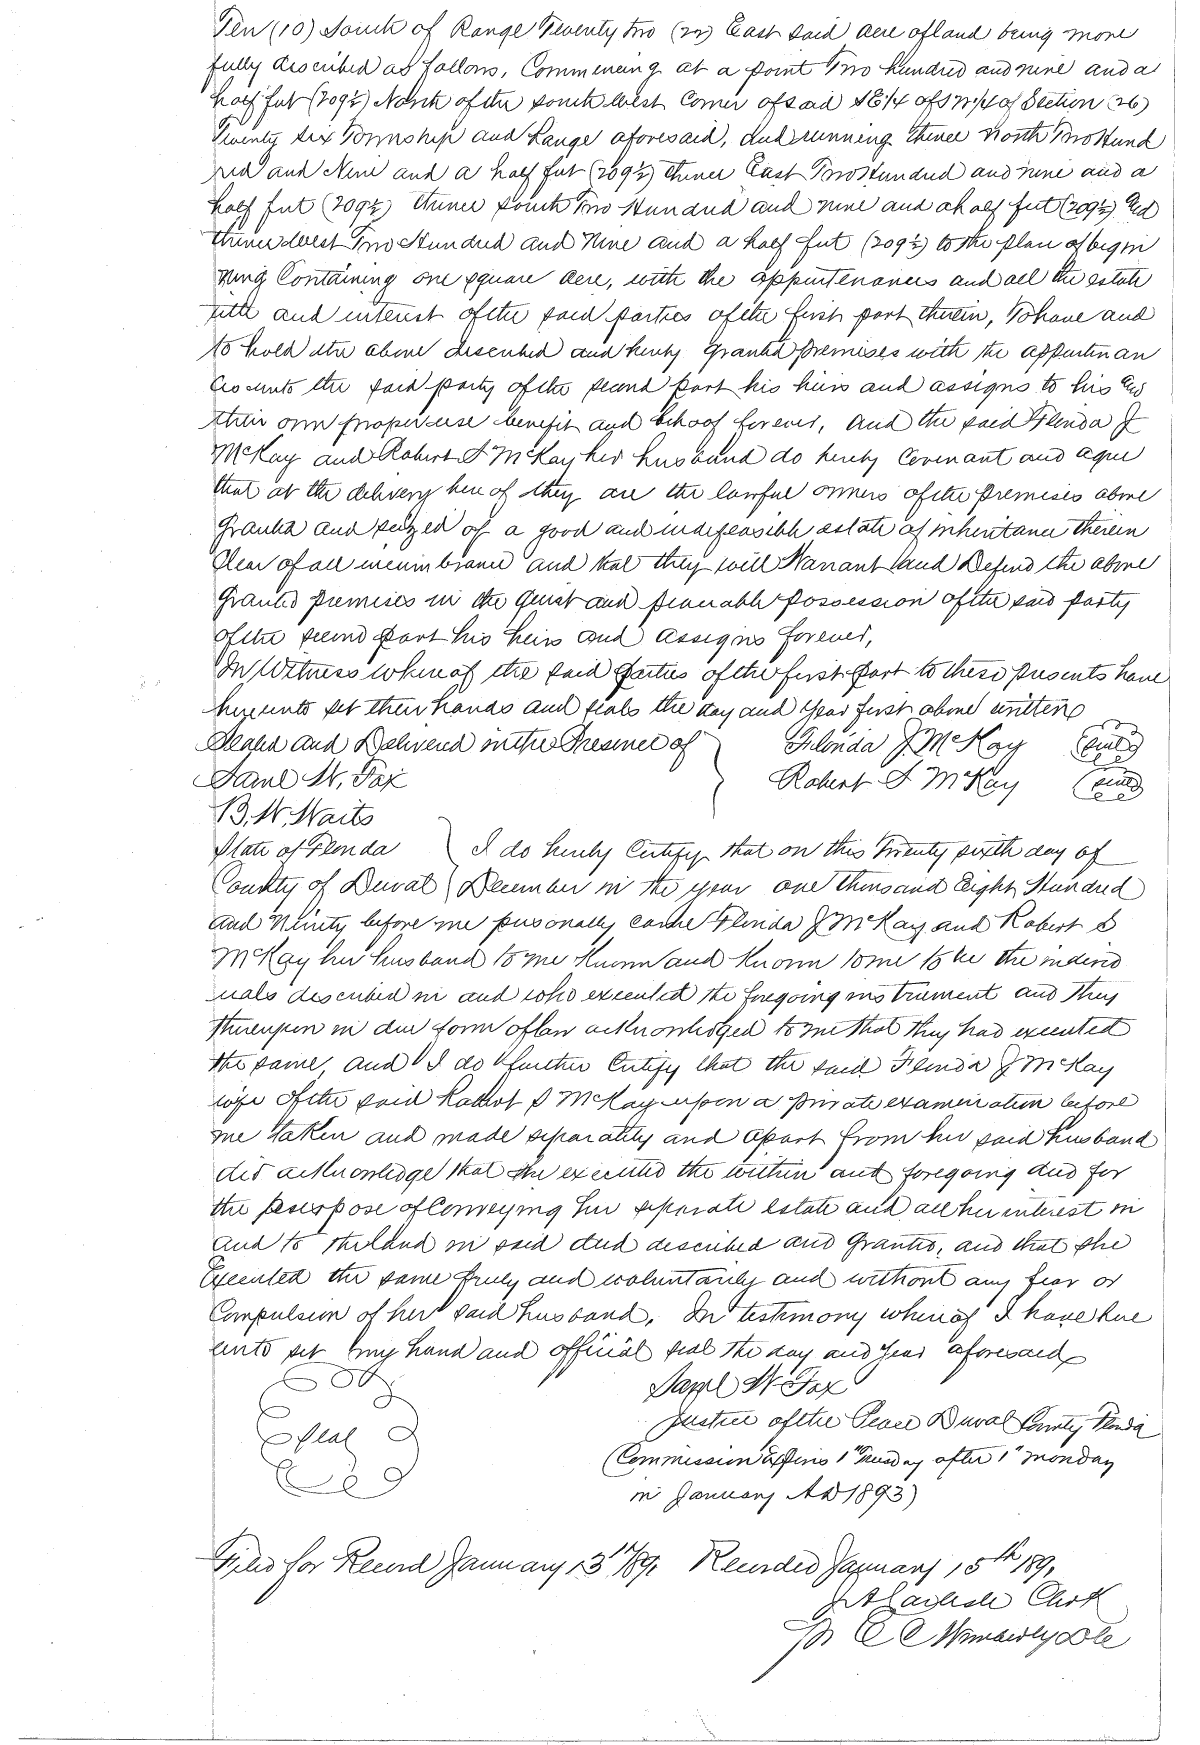 Ten (10) South of Range Twenty two (22) East said acre of land being more
fully described as follows, Commencing at a point Two hundred and nine and a
half feet (209½) North of the south West Corner of said SE¼ of SW¼ of Section (26)
Twenty six Township and Range aforesaid, and running thence North Two Hund
red and Nine and a half feet (209½) thence East Two Hundred and nine and a
half feet (209½) thence South Two Hundred and nine and a half feet (209½) and
thence West Two Hundred and Nine and a half feet (209½) to the place of begin
ning Containing one square acre, with the appurtenances and all the estate
title and interest of the said parties of the first part therein, To have and
to hold the above described and hereby granted premises with the appurtenan
ces unto the said party of the second part his heirs and assigns to his and
their own proper use benefit and behoof forever, And the said Florida J
McKay and Robert S McKay her husband do hereby Covenant and agree
that at the delivery hereof they are the lawful owners of the premises above
Granted and seized of a good and indefeasible estate of inheritance therein
Clear of all incumbrance and that they will Warrant and Defend the above
Granted premises in the quiet and peaceable possession of the said party
of the second part his heirs and assigns forever,
In Witness whereof the said parties of the first part to these presents have
hereunto set their hands and seals the day and year first above written
Sealed and Delivered in the Presence of } Florida J. McKay (seal)
Saml W. Fox Robert S McKay (seal)
B. W. Waits
State of Florida } I do hereby Certify that on this Twenty sixth day of
County of Duval } December in the year one thousand Eight Hundred
and Ninety before me personally came Florida J McKay and Robert S
McKay her husband to me Known and Known to me to be the individ
uals described in and who executed the foregoing instrument and they
thereupon in due form of law acknowledged to me that they had executed
the same, and I do further Certify that the said Florida J McKay
wife of the said Robert S McKay upon a private examination before
me taken and made separately and apart from her said husband
did acknowledge that she executed the within and foregoing deed for
the purpose of Conveying her separate estate and all her interest in
and to the land in said deed described and granted, and that she
Executed the same freely and voluntarily and without any fear or
Compulsion of her said husband. In testimony whereof I have here
unto set my hand and official seal the day and year aforesaid
Saml W Fox
Seal Justice of the Peace Duval County Florida
(Commission Expires 1" Tuesday after 1" Monday
in January AD 1893)
Filed for Record January 13th 1891 Recorded January 15th 1891
Clerk
C C Wimberly DC